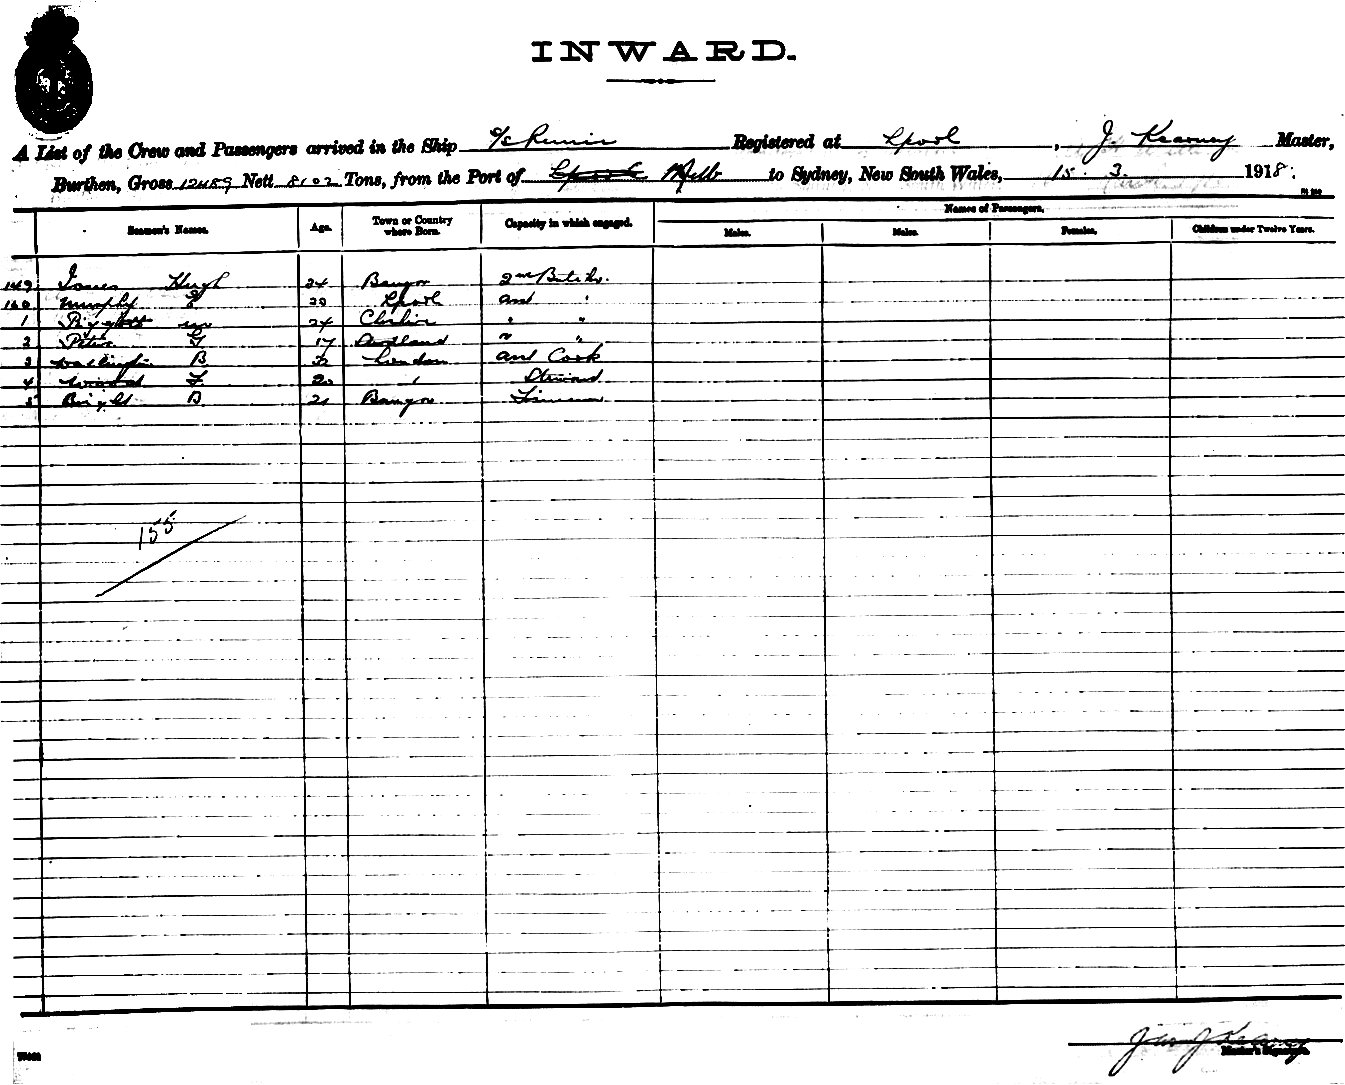 INWARD.
A List of the Crew and Passengers arrived in the Ship s/s Runic Registered at Lpool, J Kearney Master,
Burthen, Gross 12489 Nett 8102 Tons, from the Port of Lpool Melb to Sydney, New South Wales, 15. 3. 1918.
Seamen's Names. Age. Town or Country where Born. Capacity in which engaged. Names of Passengers.
Males. Males. Females. Children under Twelve Years.
149 Jones Hugh 24 Bangor 2nd Butcher.
Murphy 20 Lpool asst "
1 24 Cheshire " "
2 Peter G 17 " "
3 B London asst Cook
4 F 20 " Steward
5 Bright B 21 Bangor Fireman
155
Jas J Kearney
Master's Signature.